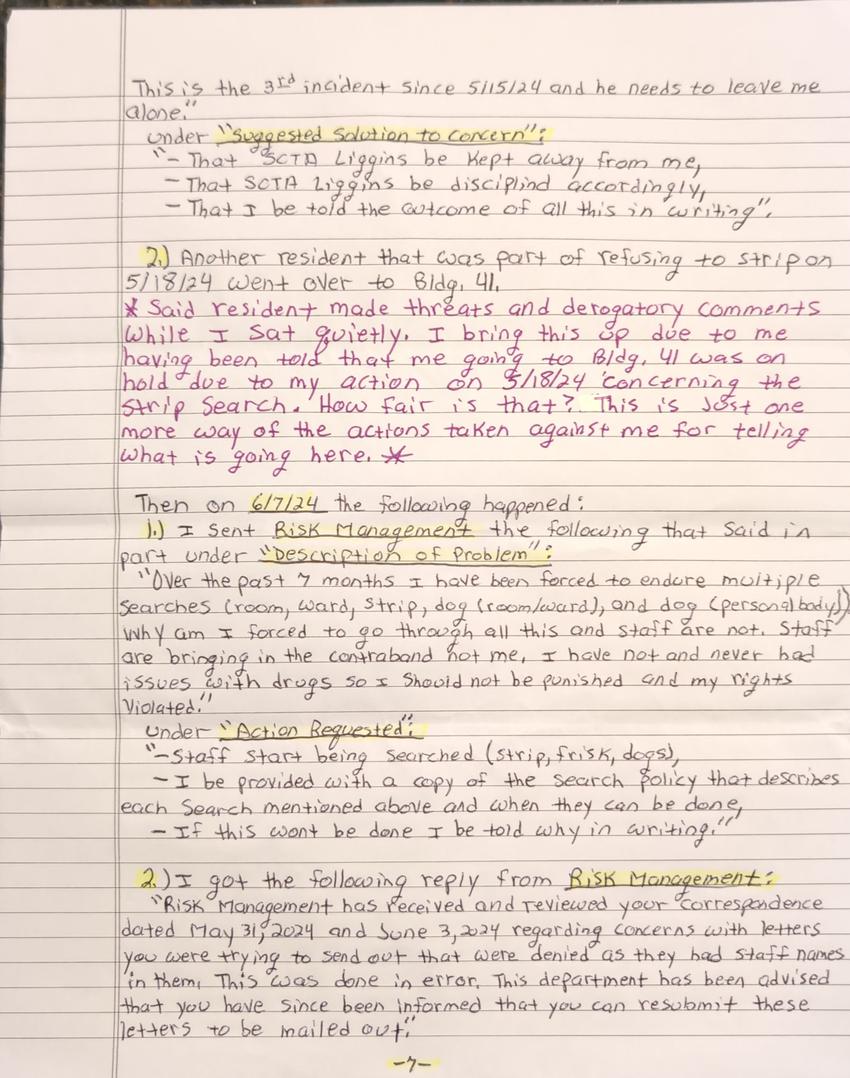 This is the 3rd incident since 5/15/24 and he needs to leave me
alone."
under "Suggested Solution to Concern":
"- That SCTA Liggins be kept away from me,
- That SCTA Liggins be disciplind accordingly,
- That I be told the outcome of all this in writing".
2.) Another resident that was part of refusing to strip on
5/18/24 went over to Bldg. 41.
* Said resident made threats and derogatory comments
while I sat quietly. I bring this up due to me
having been told that me going to Bldg. 41 was on
hold due to my action on 5/18/24 concerning the
strip search. How fair is that? This is Just one
more way of the actions taken against me for telling
what is going here. *
Then on 6/7/24 the following happened:
1.) I sent Risk Management the following that said in
part under "Description of Problem":
"Over the past 7 months I have been forced to endure multiple
searches (room, ward, strip, dog (room/ward), and dog (personal body))
why am I forced to go through all this and staff are not. Staff
are bringing in the contraband not me, I have not and never had
issues with drugs so I should not be punished and my rights
violated."
under "Action Requested":
"-Staff start being searched (strip, frisk, dogs),
- I be provided with a copy of the search policy that describes
each search mentioned above and when they can be done,
- If this wont be done I be told why in writing."
2.) I got the following reply from Risk Management:
"Risk Management has received and reviewed your correspondence
dated May 31, 2024 and June 3, 2024 regarding concerns with letters
you were trying to send out that were denied as they had staff names
in them. This was done in error. This department has been advised
that you have since been informed that you can resubmit these
letters to be mailed out."
-7-